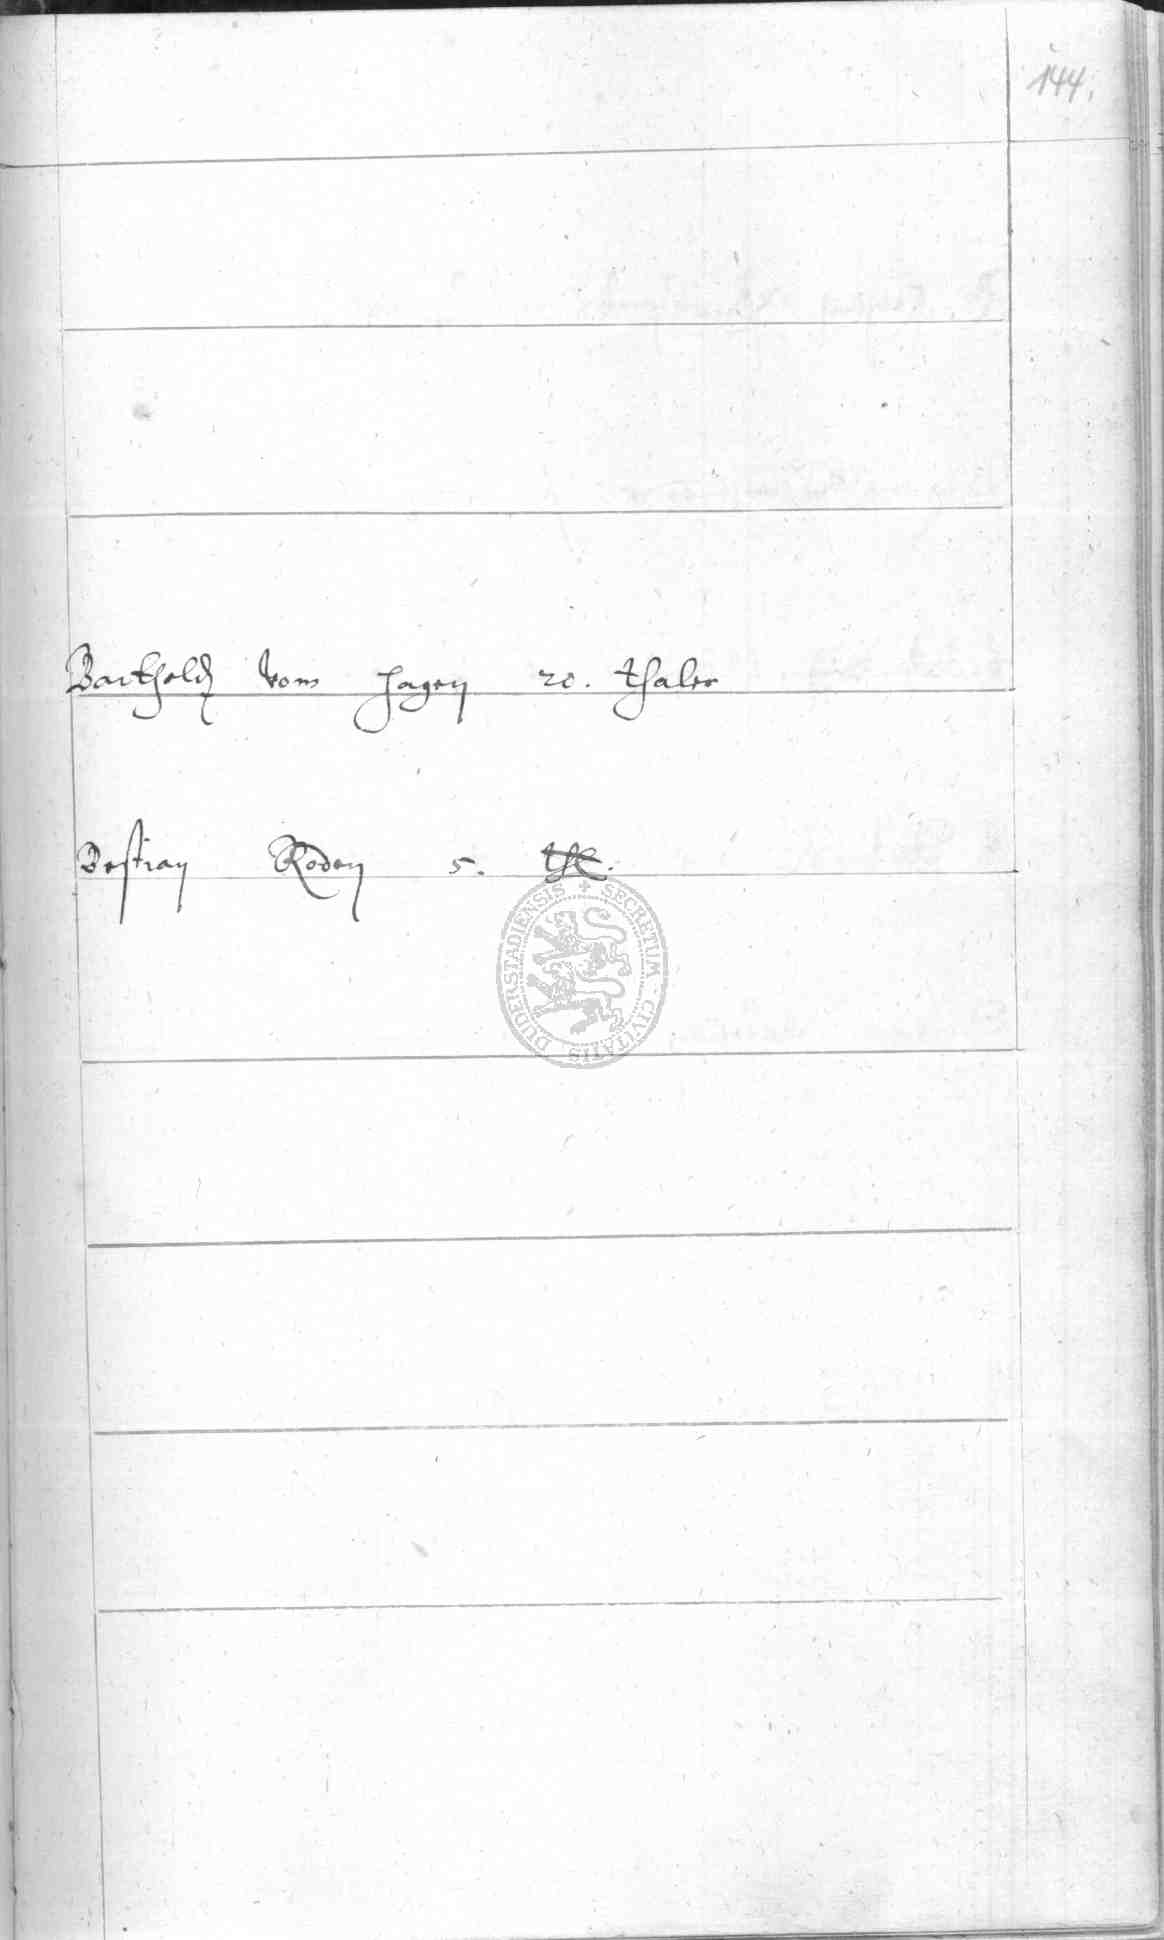 144.
Barthold vom Hagen 20. thaler
Bestian Roden 5. thl.
SECRETUM CIVITATIS DUDERSTADIENSIS